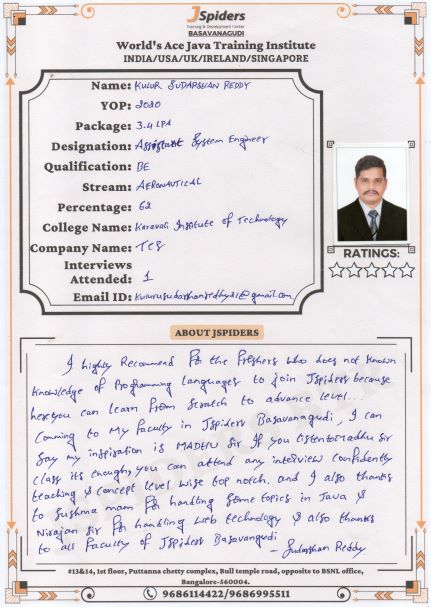 JSpiders
Training & Development Center
BASAVANAGUDI
World's Ace Java Training Institute
INDIA/USA/UK/IRELAND/SINGAPORE
Name: KULUR SUDARSHAN REDDY
YOP: 2020
Package: 3.4 LPA
Designation: Assistant System Engineer
Qualification: BE
Stream: AERONAUTICAL
Percentage: 62
College Name: Karavali Institute of Technology
Company Name: TCS
Interviews
Attended: 1
Email ID: kulurusudarshanreddy21@gmail.com
RATINGS:
ABOUT JSPIDERS
I highly Recommend for the freshers who does not known
knowledge of Programming languages to join Jspiders because
here you can learn from scratch to advance level...
Comming to My faculty in Jspiders Basavanagudi, I can
Say my inspiration is MADHU Sir If you listen to Madhu sir
class its enough, you can attend any interview confidently
teaching & concept level wise top notch. and I also thanks
to Sushma mam for handling some topics in Java &
Nirajan Sir for handling web technology & also thanks
to all Faculty of Jspiders Basavangudi
- Sudarshan Reddy
#13&14, 1st floor, Puttanna chetty complex, Bull temple road, opposite to BSNL office,
Bangalore-560004.
9686114422/9686995511